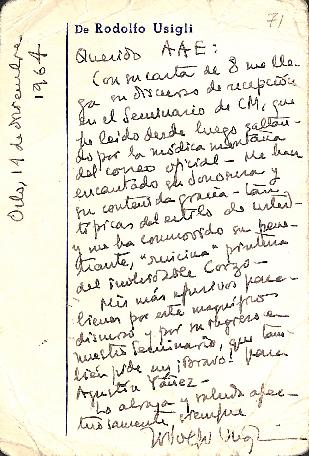 71
De Rodolfo Usigli
Oslo, 14 de diciembre
1964
Querido AAE:
Con su carta de 8 me lle-
ga su discurso de recepción
en el Seminario de CM, que
he leído desde luego
do por la módica
del correo oficial — Me han
encantado su donosura y
su contenida gracia — tan
típicas del estilo de usted —
y me ha conmovido su pene-
trante, pintura
del inolvidable Corzo —
Mis más efusivos para-
bienes por este magnífico
discurso y por su regreso a
nuestro Seminario, que tam-
bién pide un ¡Bravo! para
Agustín Yáñez —
Lo abraza y saluda afec-
tuosamente siempre
Rodolfo Usigli